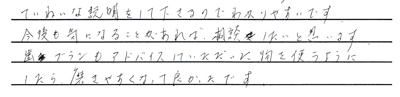 ていねいな説明をして下さるのでわかりやすいです
今後も気になることがあれば、相談したいと思います
歯ブラシもアドバイスいただいた物を使うように
したら、磨きやすくなって良かったです